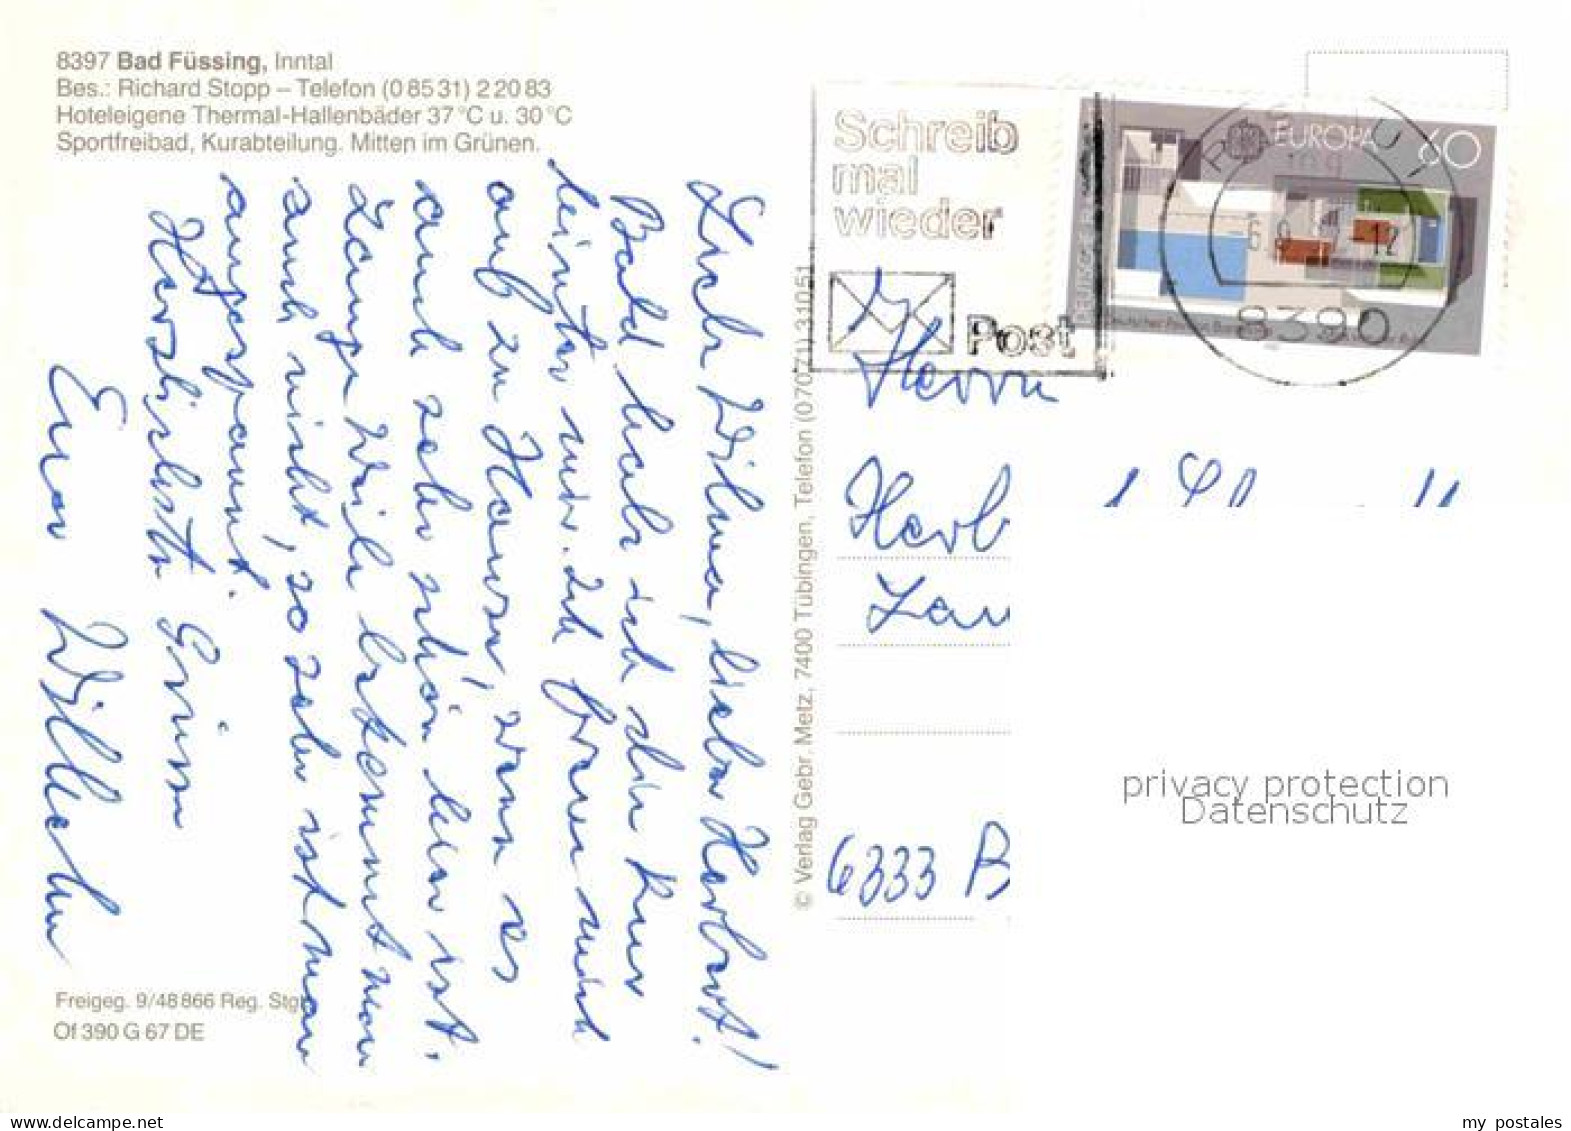 8397 Bad Füssing, Inntal
Bes.: Richard Stopp – Telefon (0 85 31) 2 20 83
Hoteleigene Thermal-Hallenbäder 37 °C u. 30 °C
Sportfreibad, Kurabteilung. Mitten im Grünen.
Liebe Wilma, lieber Herbert!
Bald habe ich die Kur
hinter mir. Ich freue mich
auf zu Hause, wenn es
auch sehr schön hier ist.
Lange Weile bekommt man
auch nicht, so sehr ist man
angespannt.
Herzlichste Grüsse
Euer Willichen
Freigeg. 9/48 866 Reg. Stgt
Of 390 G 67 DE
© Verlag Gebr. Metz, 7400 Tübingen, Telefon (07071) 31051
Schreib
mal
wieder
Post
EUROPA 60
8390
Herrn
Herb
Lau
6333 B
privacy protection
Datenschutz
my postales